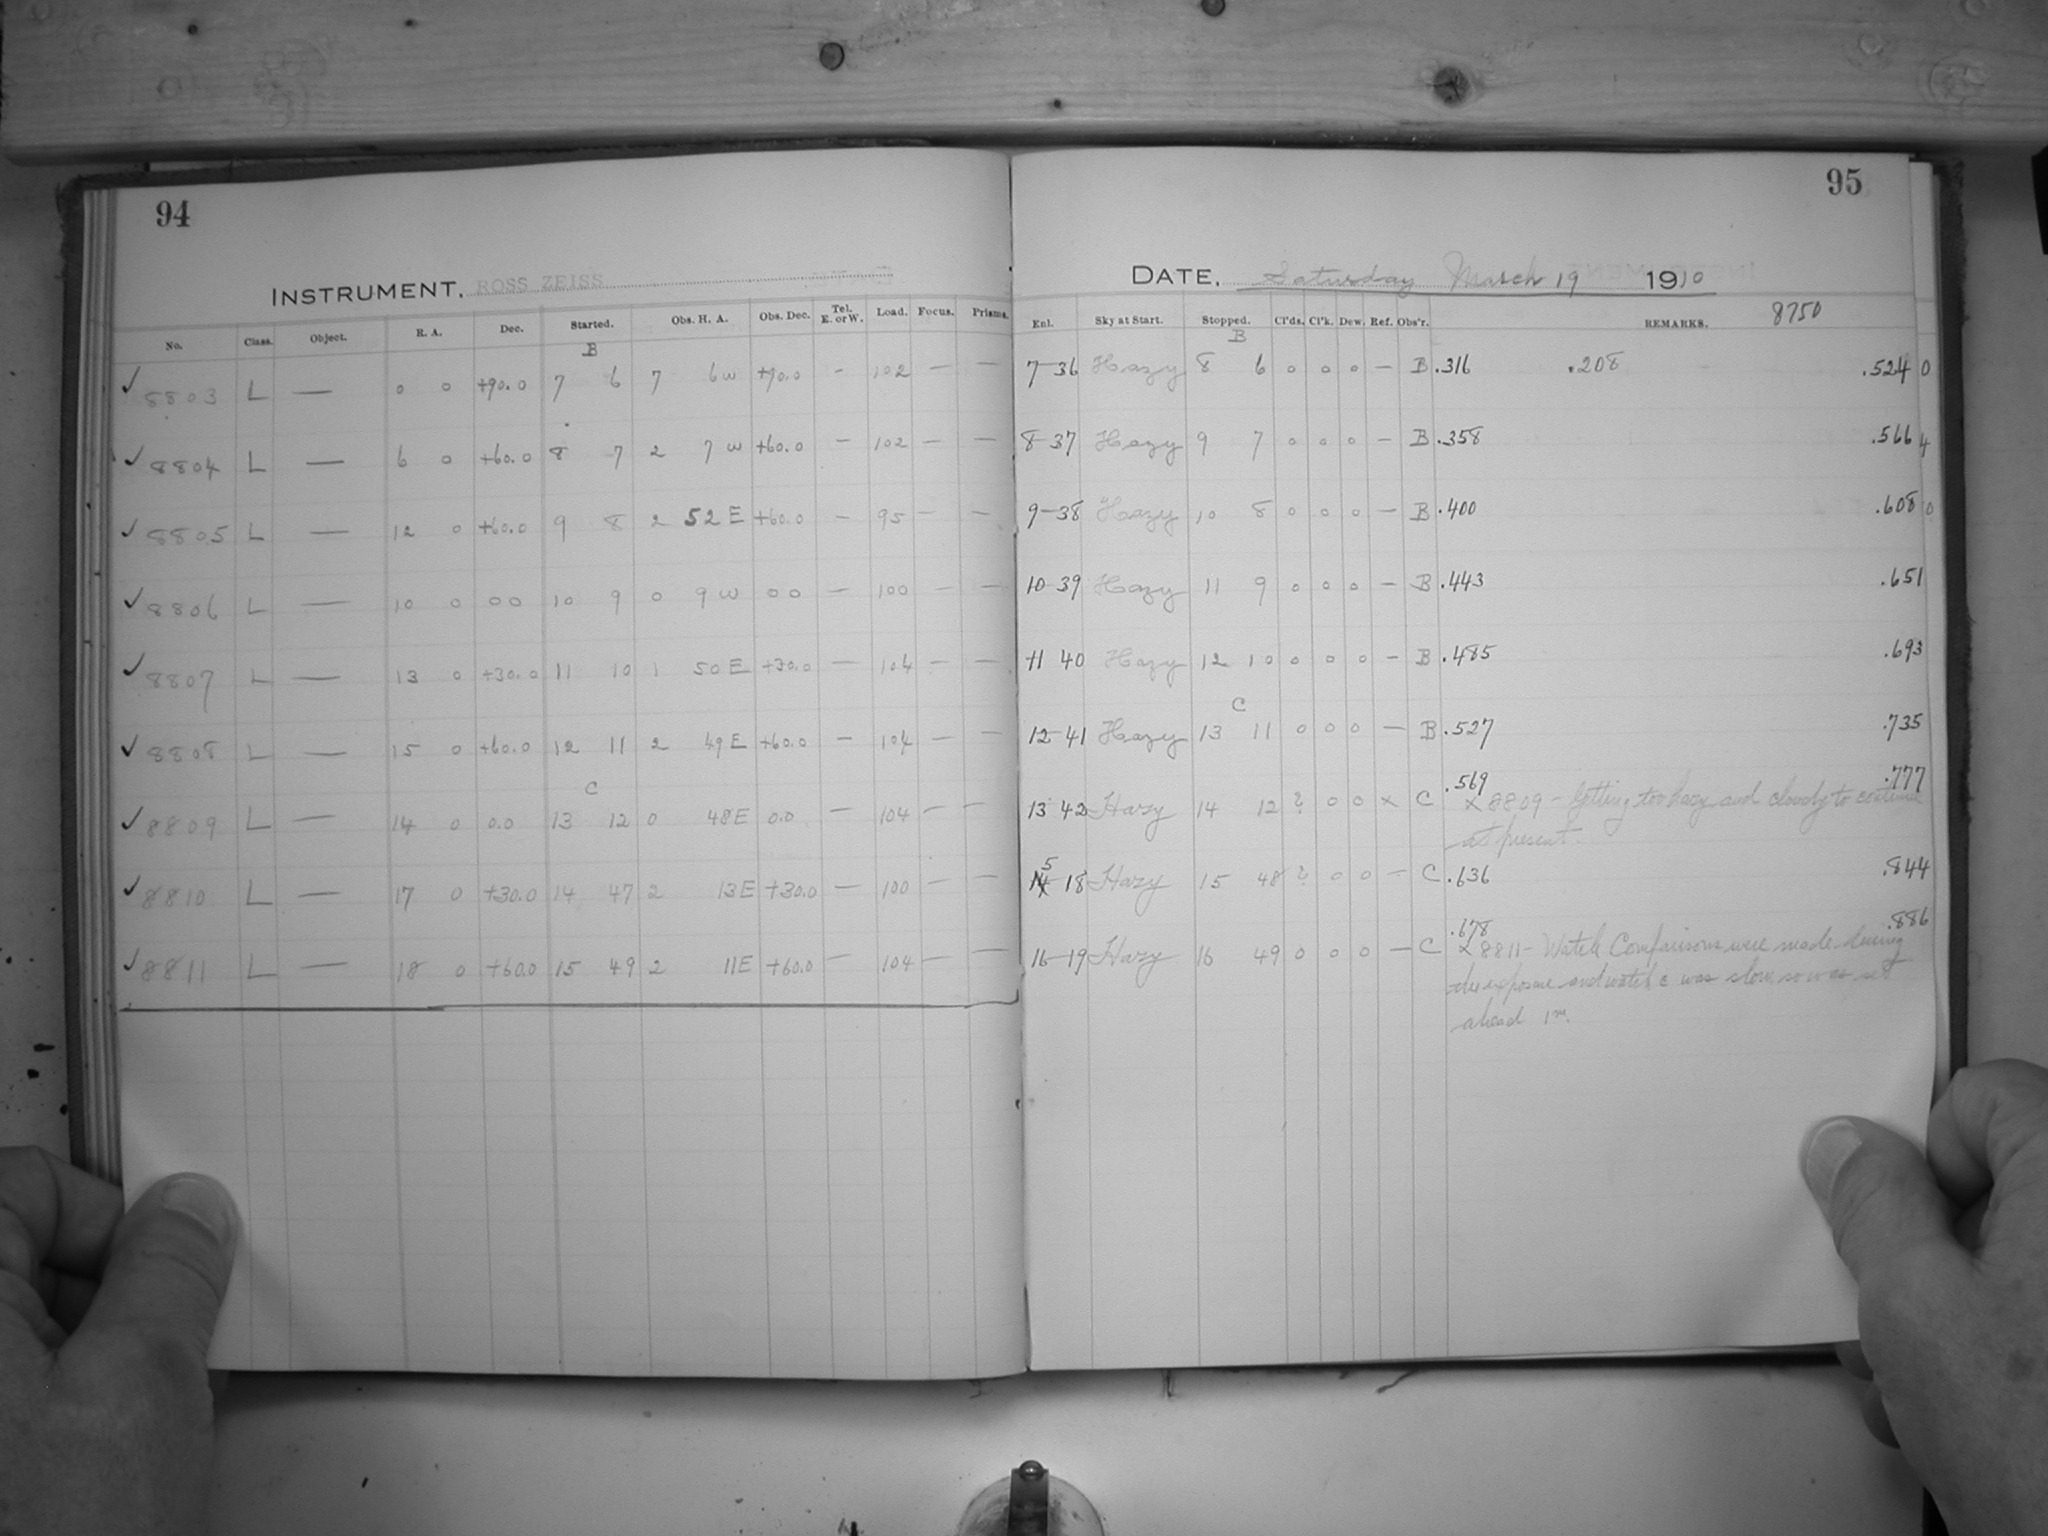 94
INSTRUMENT. ROSS ZEISS
No. Class. Object. R. A. Dec. Started. Obs. H. A. Obs. Dec. Tel. E. or W. Load. Focus. Prisms.
B
✓ 8803 L — 0 0 +90.0 7 6 7 6 W +90.0 — 102 — —
✓ 8804 L — 6 0 +60.0 8 7 2 7 W +60.0 — 102 — —
✓ 8805 L — 12 0 +60.0 9 8 2 52 E +60.0 — 95 — —
✓ 8806 L — 10 0 0 0 10 9 0 9 W 0 0 — 100 — —
✓ 8807 L — 13 0 +30.0 11 10 1 50 E +30.0 — 104 — —
✓ 8808 L — 15 0 +60.0 12 11 2 49 E +60.0 — 104 — —
C
✓ 8809 L — 14 0 0.0 13 12 0 48 E 0.0 — 104 — —
✓ 8810 L — 17 0 +30.0 14 47 2 13 E +30.0 — 100 — —
✓ 8811 L — 18 0 +60.0 15 49 2 11 E +60.0 — 104 — —
95
DATE. Saturday March 19 1910
Enl. Sky at Start. Stopped. Cl'ds. Cl'k. Dew. Ref. Obs'r. REMARKS. 8750
B
7-36 Hazy 8 6 0 0 0 — B .316 .208 .524 0
8-37 Hazy 9 7 0 0 0 — B .358 .566 4
9-38 Hazy 10 8 0 0 0 — B .400 .608 0
10-39 Hazy 11 9 0 0 0 — B .443 .651
11 40 Hazy 12 10 0 0 0 — B .485 .693
C
12-41 Hazy 13 11 0 0 0 — B .527 .735
.569 .777
13 42 Hazy 14 12 ? 0 0 x C x 8809 - Getting too hazy and cloudy to continue
at present.
5
14 18 Hazy 15 48 ? 0 0 — C .636 .844
.678 .886
16-19 Hazy 16 49 0 0 0 — C x 8811 - Watch Comparisons were made during
the exposure and watch c was slow so was set
ahead 1m.